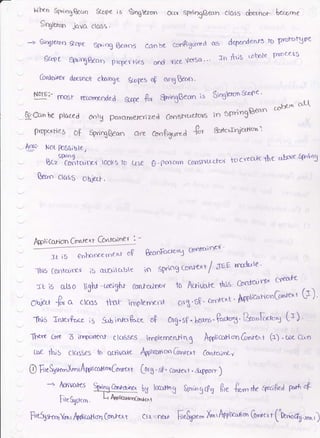 When SpringBean Scope is Singleton our springBean class doesnot become
Singleton Java class.
→ Singleton scope Spring Beans can be configured as dependents to prototype
Scope SpringBean properties and vice versa... In this whole process
Container doesnot change scopes of any Bean.
NOTE:- most recommended scope for SpringBean is Singleton Scope.
Q:- Can be placed only parameterized Constructors in SpringBean when all
properties of SpringBean are configured for SetterInjection?
Ans Not possible,
Bcz spring Container looks to use 0-param constructor to create the above Spring
Bean class object.
Application Context Container :-
It is enhancement of BeanFactory container.
This Container is available in spring context / JEE module.
It is also light-weight container to Activate this Container create
Object for a class that implements org.sf.context.ApplicationContext (I).
This Interface is Sub interface of Org.sf.beans.factory.BeanFactory (I).
There are 3 important classes implementing ApplicationContext (I). we can
use this classes to activate Application Context Container
① FileSystemXmlApplicationContext (org.sf.context.support)
→ Activates Spring Container by locating Spring cfg file from the specified path of
FileSystem. ApplicationContext
FileSystemXmlApplicationContext ctx = new FileSystemXmlApplicationContext ("DemoCfg.xml")